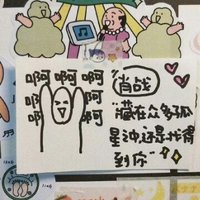 啊啊啊
啊 啊
啊 啊
肖战
"藏在众多孤
星冲还是找得
到你"